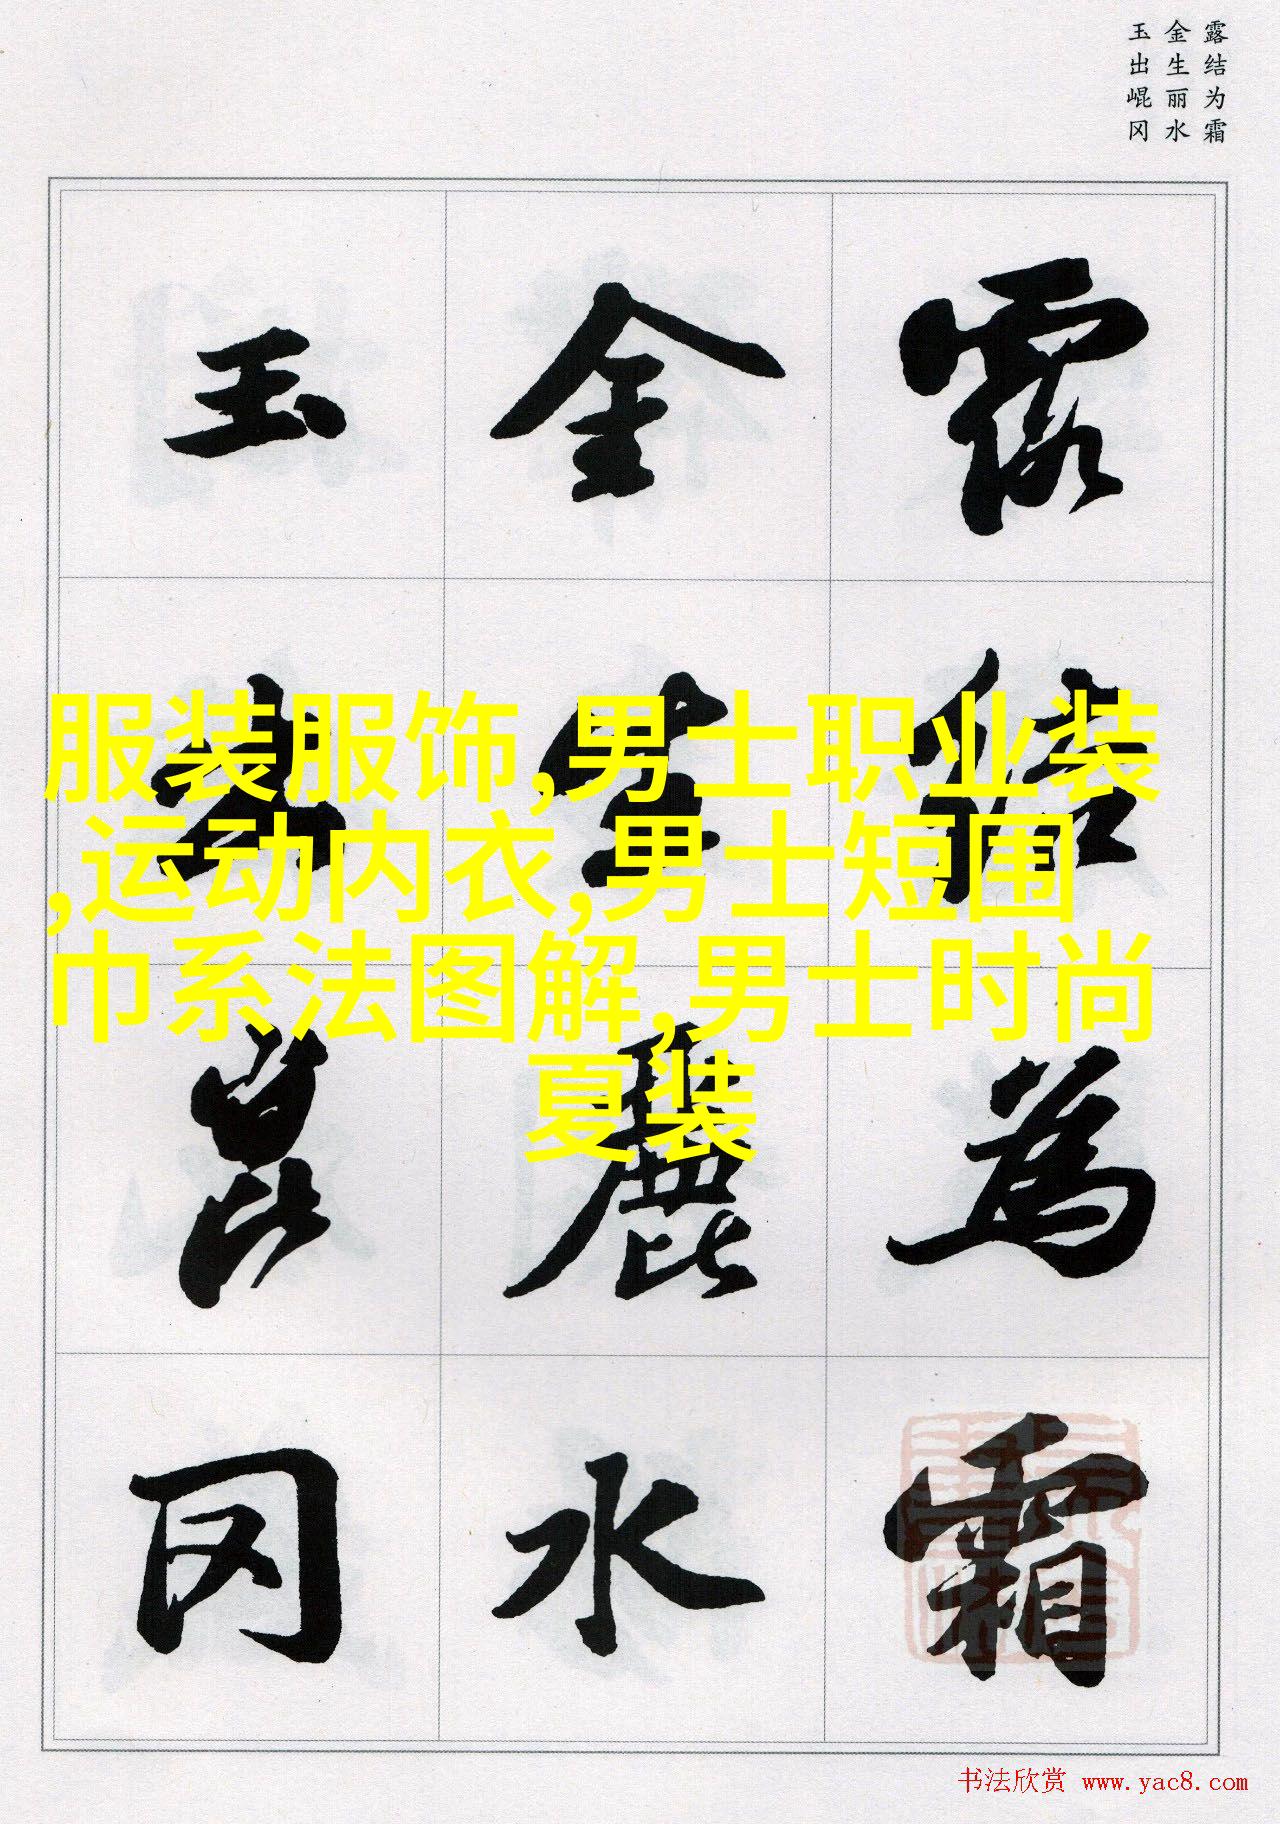 露结为霜
金生丽水
玉出崐冈
露結為霜
金生麗水
玉出崑冈
服装服饰,男士职业装
,运动内衣,男士短围
巾系法图解,男士时尚
夏装
书法欣赏 www.yac8.com